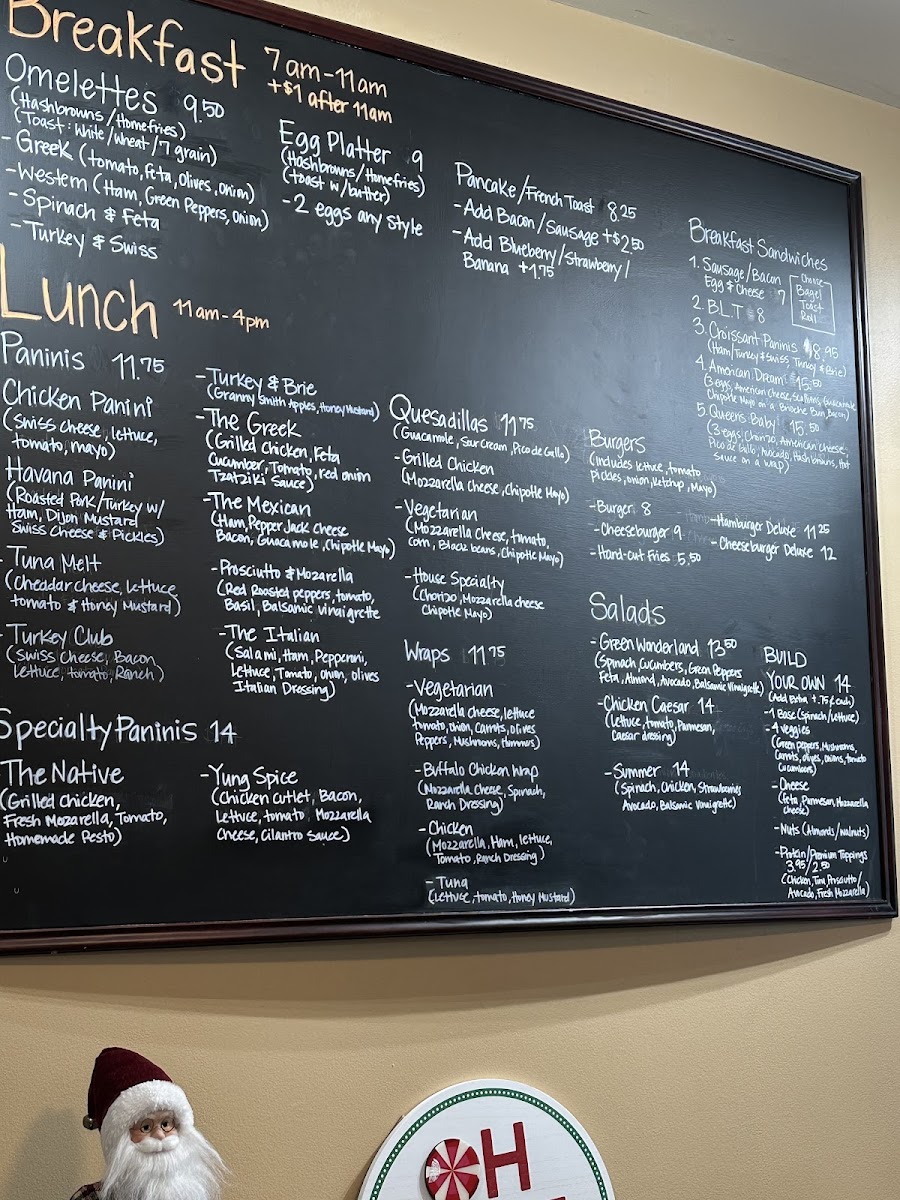 Breakfast 7am-11am
+$1 after 11am
Omelettes 9.50
(Hashbrowns/Homefries)
(Toast: White/Wheat/7 grain)
- Greek (tomato, feta, Olives, Onion)
- Western (Ham, Green Peppers, Onion)
- Spinach & Feta
- Turkey & Swiss
Egg Platter 9
(Hashbrowns/Homefries)
(toast w/butter)
- 2 eggs any style
Pancake/French Toast 8.25
- Add Bacon/Sausage +$2.50
- Add Blueberry/Strawberry/
Banana +1.75
Breakfast Sandwiches
1. Sausage/Bacon
Egg & Cheese 7
Choose
Bagel
Toast
Roll
2. B.L.T 8
3. Croissant Paninis 8.95
(Ham/Turkey & Swiss, Turkey & Brie)
4. American Dream 15.50
(3 eggs, American cheese, Scallions, Guacamole
Chipotle Mayo on a Brioche Bun, Bacon)
5. Queen's Baby 15.50
(3 eggs, Chorizo, American cheese,
Pico de Gallo, Avocado, Hash browns, Hot
Sauce on a Wrap)
Lunch 11am-4pm
Paninis 11.75
Chicken Panini
(Swiss cheese, lettuce,
tomato, mayo)
Havana Panini
(Roasted Pork/Turkey w/
Ham, Dijon Mustard
Swiss Cheese & Pickles)
- Tuna Melt
(Cheddar cheese, Lettuce
tomato & Honey Mustard)
- Turkey Club
(Swiss Cheese, Bacon
Lettuce, tomato, Ranch)
- Turkey & Brie
(Granny Smith Apples, Honey Mustard)
- The Greek
(Grilled Chicken, Feta
Cucumber, Tomato, red onion
Tzatziki Sauce)
- The Mexican
(Ham, Pepper Jack cheese
Bacon, Guacamole, Chipotle Mayo)
- Prosciutto & Mozarella
(Red Roasted peppers, tomato,
Basil, Balsamic vinaigrette
- The Italian
(Salami, Ham, Pepperoni,
Lettuce, Tomato, onion, olives
Italian Dressing)
Specialty Paninis 14
The Native
(Grilled Chicken,
Fresh Mozarella, Tomato,
Homemade Pesto)
- Yung Spice
(Chicken Cutlet, Bacon,
Lettuce, tomato, Mozzarella
Cheese, Cilantro Sauce)
Quesadillas 11.75
(Guacamole, Sour Cream, Pico de Gallo)
- Grilled Chicken
(Mozzarella Cheese, Chipotle Mayo)
- Vegetarian
(Mozzarella Cheese, tomato,
Corn, Black beans, Chipotle Mayo)
- House Specialty
(Chorizo, Mozzarella cheese
Chipotle Mayo)
Wraps 11.75
- Vegetarian
(Mozzarella cheese, lettuce
tomato, onion, Carrots, olives
Peppers, Mushrooms, Hummus)
- Buffalo Chicken Wrap
(Mozzarella Cheese, Spinach,
Ranch Dressing)
- Chicken
(Mozzarella, Ham, lettuce,
Tomato, Ranch Dressing)
- Tuna
(Lettuce, tomato, Honey Mustard)
Burgers
(includes lettuce, tomato
pickles, onion, Ketchup, Mayo)
- Burger 8
- Cheeseburger 9
- Hand-cut Fries 5.50
- Hamburger Deluxe 11.25
- Cheeseburger Deluxe 12
Salads
- Green Wonderland 13.50
(Spinach, Cucumbers, Green Peppers
Feta, Almond, Avocado, Balsamic Vinaigrette)
- Chicken Caesar 14
(Lettuce, tomato, Parmesan,
Caesar dressing)
- Summer 14
(Spinach, Chicken, Strawberries
Avocado, Balsamic Vinaigrette)
BUILD
YOUR OWN 14
(Add Extra +.75 each)
- 1 Base (Spinach/Lettuce)
- 4 Veggies
(Green peppers, Mushrooms,
Carrots, olives, onions, tomato
Cucumbers)
- Cheese
(Feta, Parmesan, Mozzarella
cheese)
- Nuts (Almonds/walnuts)
- Protein/Premium Toppings
3.95/2.50
(Chicken, Tuna, Prosciutto/
Avocado, Fresh Mozzarella)
OH